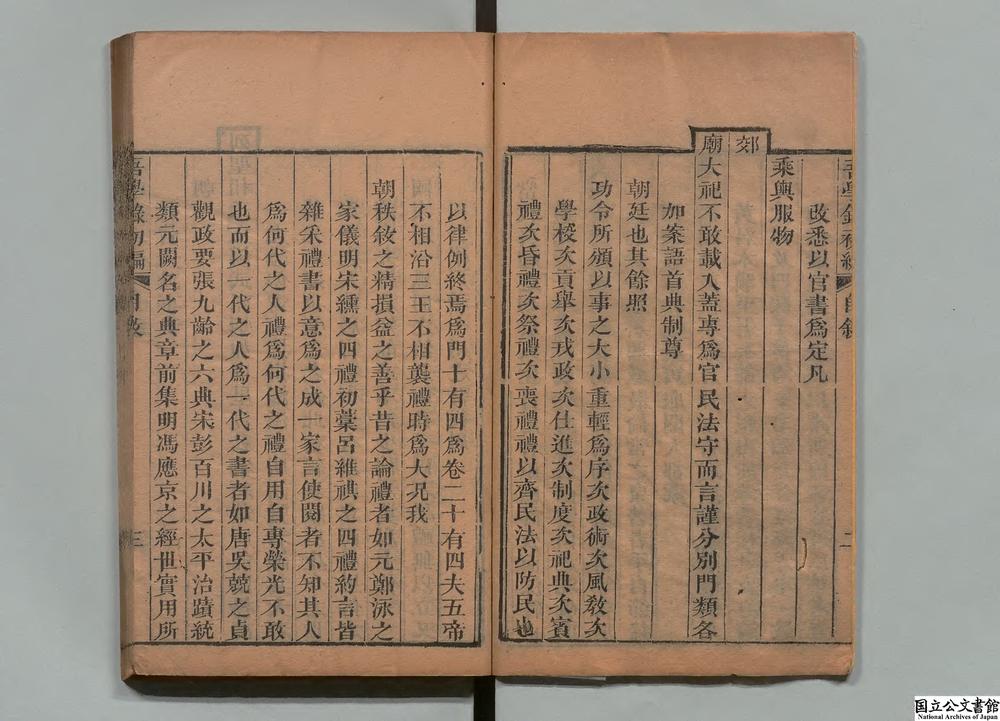 吾學錄初編
自敘
二
改悉以官書爲定凡
乘輿服物
郊
廟大祀不敢載入蓋專爲官民法守而言謹分別門類各
加案語首典制尊
朝廷也其餘照
功令所頒以事之大小重輕爲序次政術次風敎次
學校次貢舉次戎政次仕進次制度次祀典次賓
禮次昏禮次祭禮次喪禮禮以齊民法以防民也
以律例終焉爲門十有四爲卷二十有四夫五帝
不相沿三王不相襲禮時爲大况我
朝秩敘之精損益之善乎昔之論禮者如元鄭泳之
家儀明宋纁之四禮初藁呂維祺之四禮約言皆
雜采禮書以意爲之成一家言使閱者不知其人
爲何代之人禮爲何代之禮自用自專榮光不敢
也而以一代之人爲一代之書者如唐吳兢之貞
觀政要張九齡之六典宋彭百川之太平治蹟統
類元闕名之典章前集明馮應京之經世實用所
吾學錄初編
三
国立公文書館
National Archives of Japan